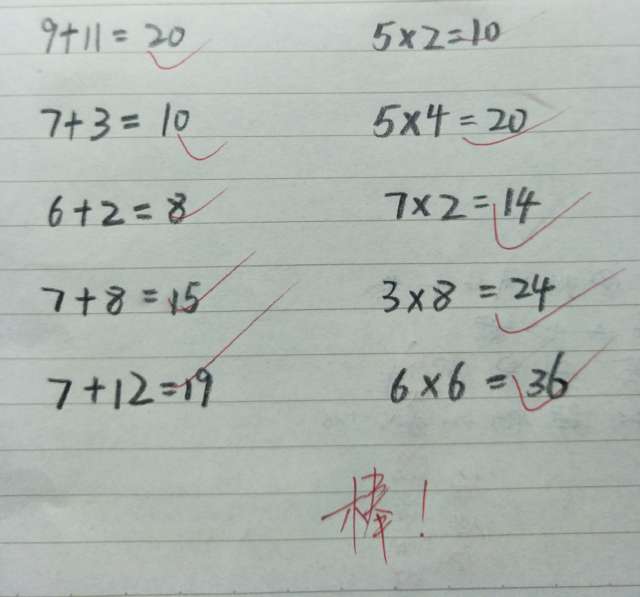 9+11=20 5×2=10
7+3=10 5×4=20
6+2=8 7×2=14
7+8=15 3×8=24
7+12=19 6×6=36
棒!